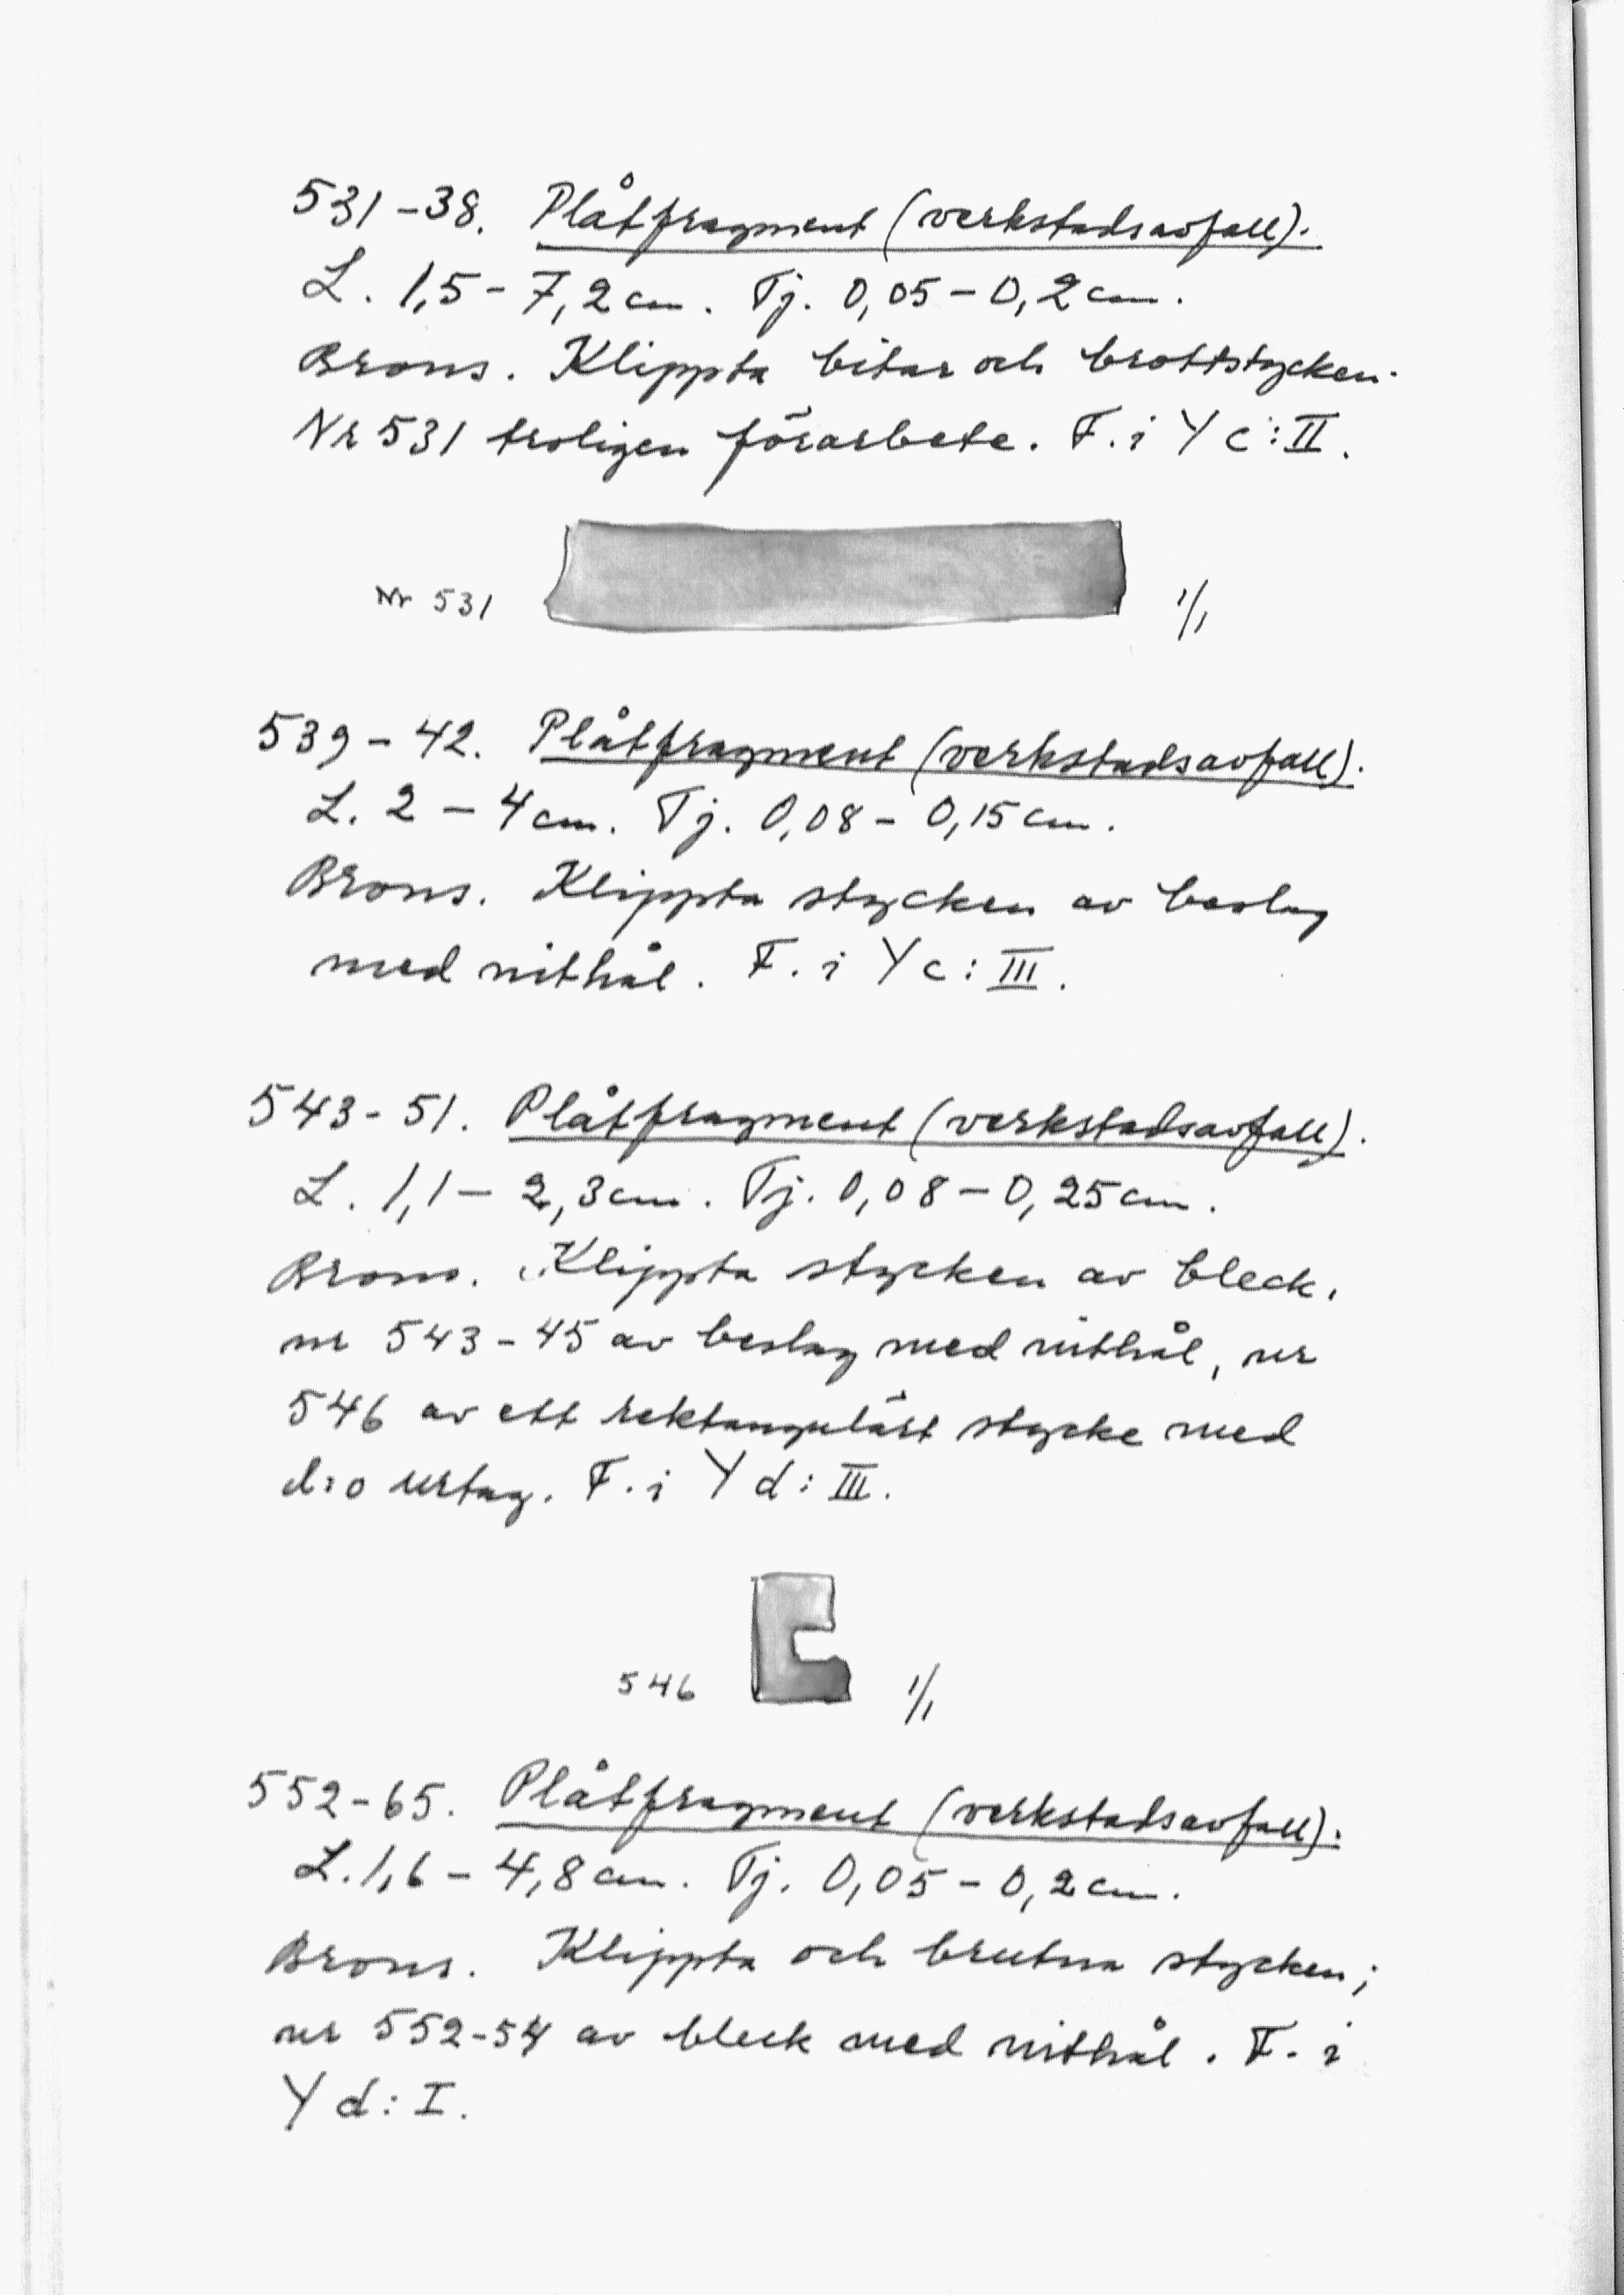 531-38. Plåtfragment (verkstadsavfall).
L. 1,5 - 7,2 cm. Tj. 0,05 - 0,2 cm.
Brons. Klippta bitar och brottstycken.
Nr 531 troligen förarbete. F. i Y c: II.
Nr 531 1/1
539 - 42. Plåtfragment (verkstadsavfall).
L. 2 - 4 cm. Tj. 0,08 - 0,15 cm.
Brons. Klippta stycken av beslag
med nithål. F. i Y c: III.
543 - 51. Plåtfragment (verkstadsavfall).
L. 1,1 - 2,3 cm. Tj. 0,08 - 0,25 cm.
Brons. Klippta stycken av bleck,
nr 543 - 45 av beslag med nithål, nr
546 av ett rektangulärt stycke med
d:o urtag. F. i Y d: III.
546 1/1
552-65. Plåtfragment (verkstadsavfall).
L. 1,6 - 4,8 cm. Tj. 0,05 - 0,2 cm.
Brons. Klippta och brutna stycken;
nr 552-54 av bleck med nithål. F. i
Y d: I.